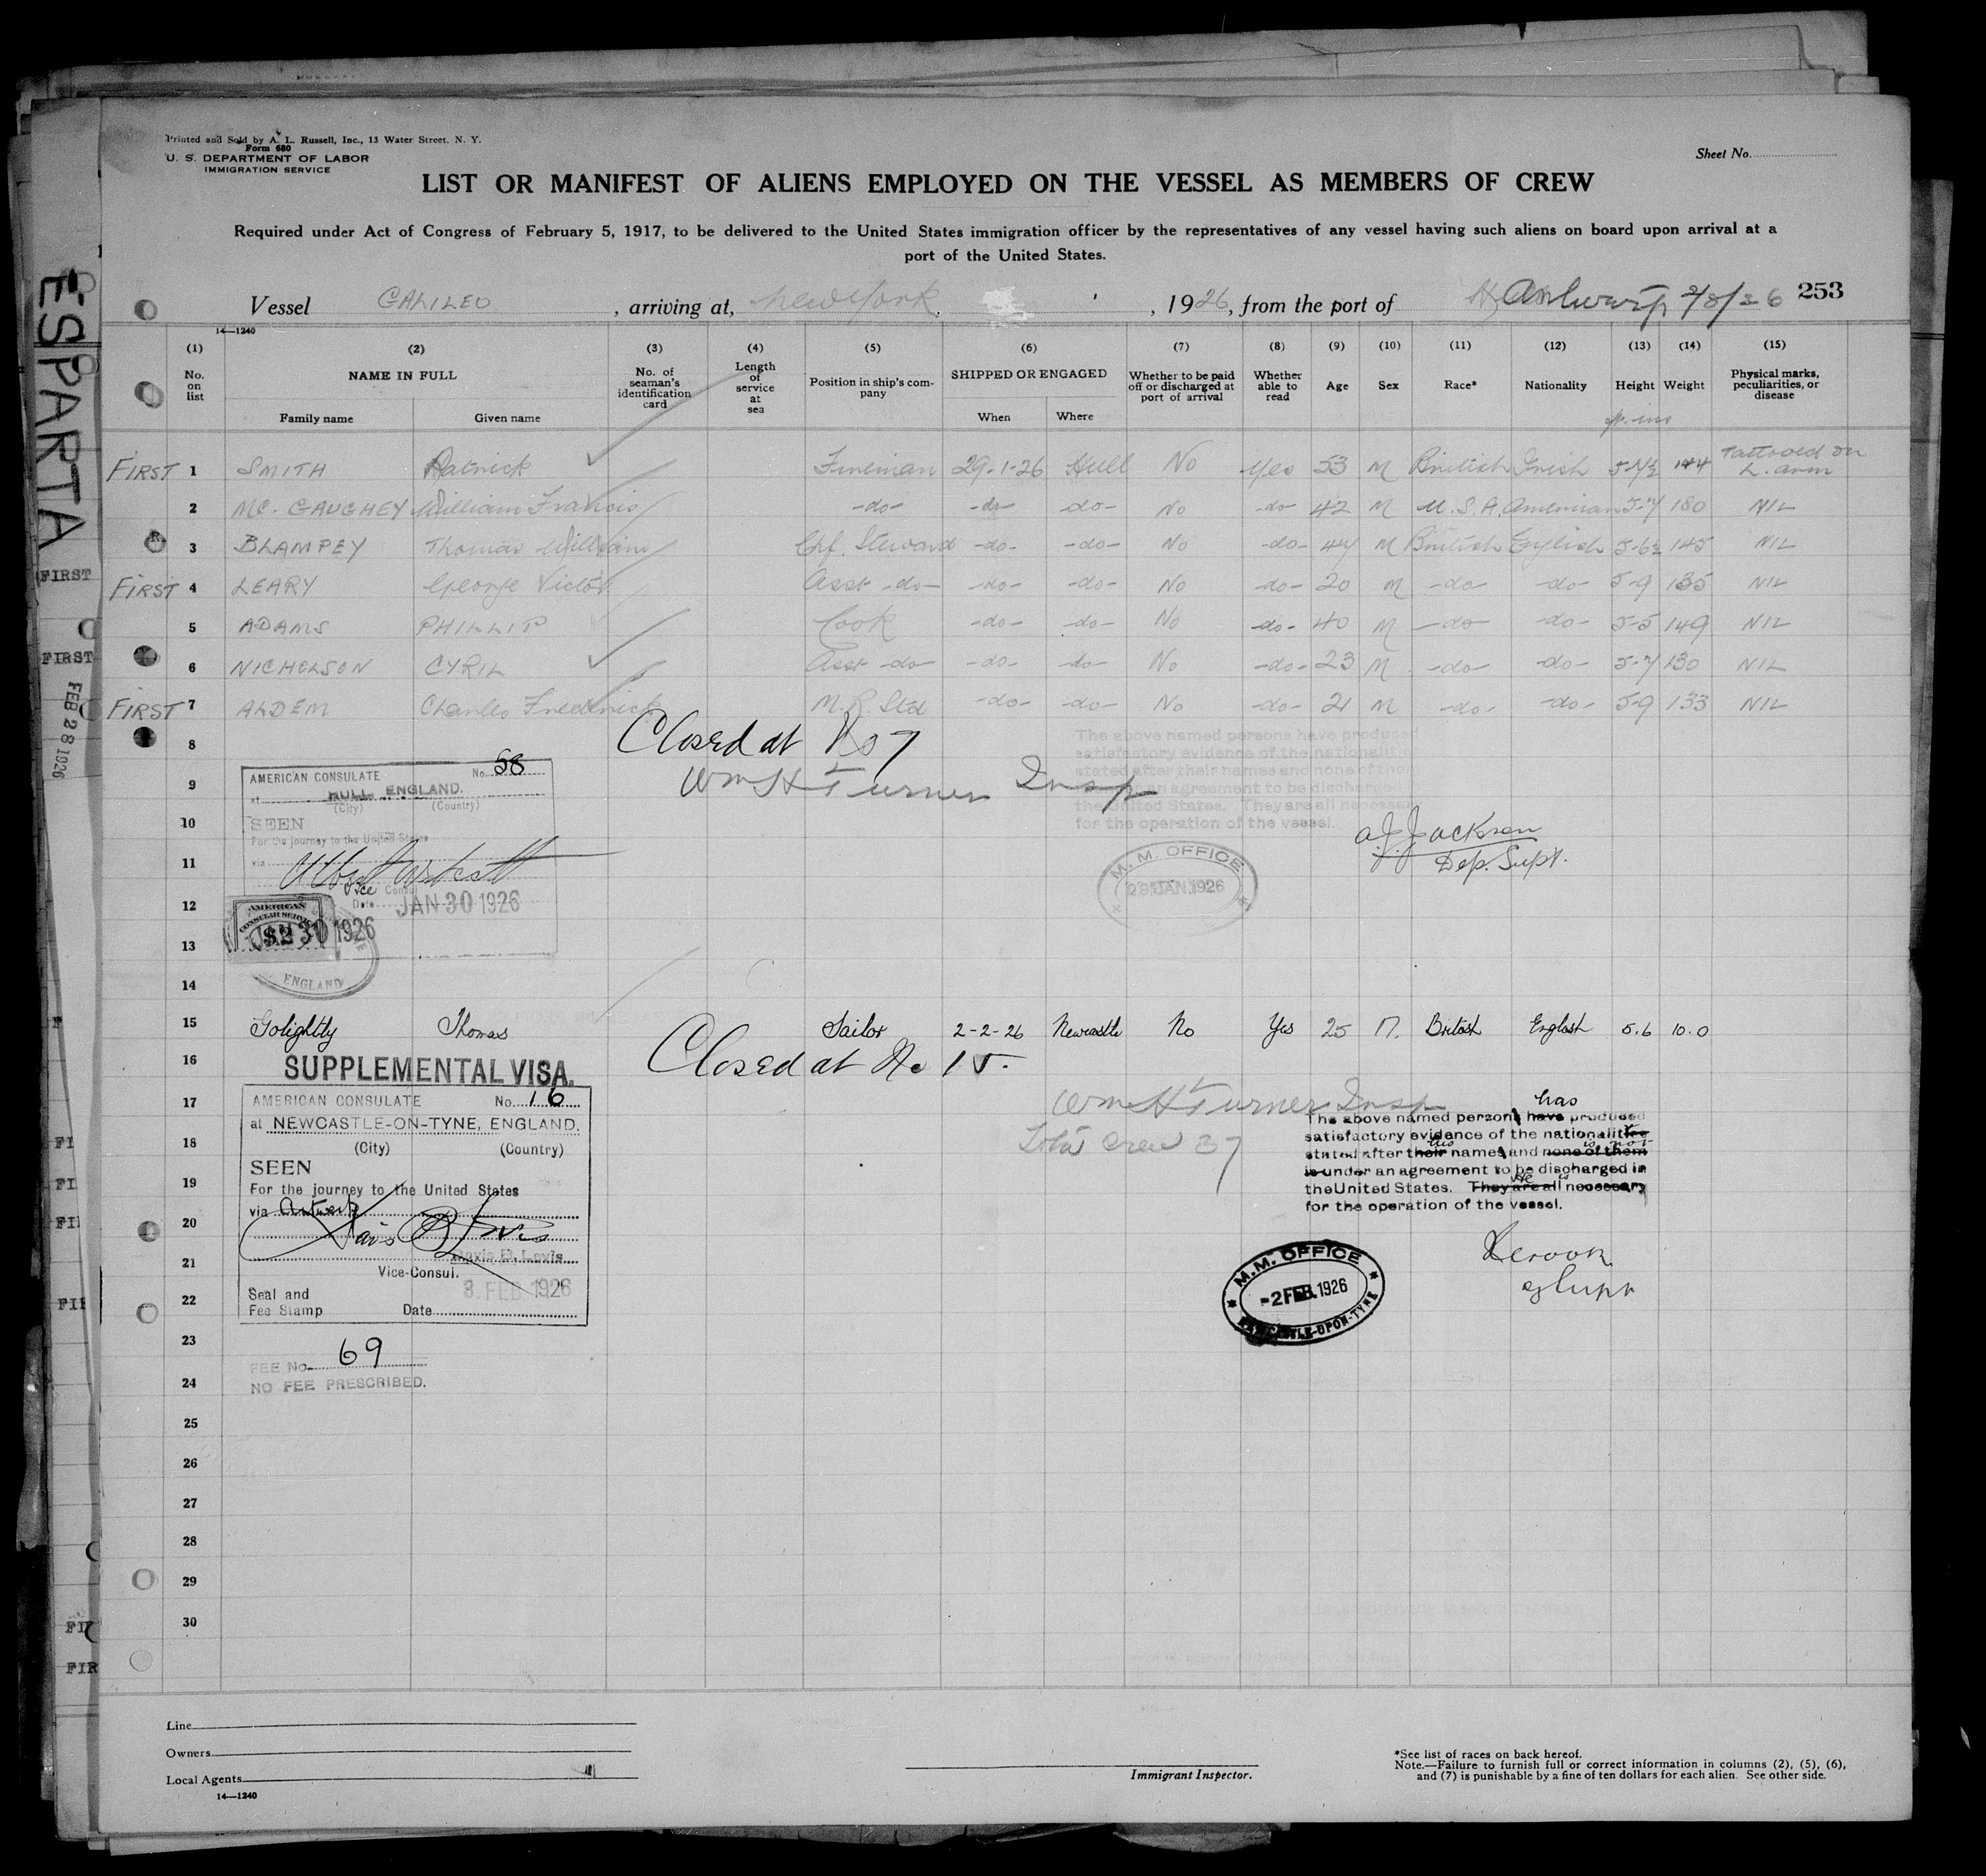 Printed and Sold by A. L. Russell, Inc., 13 Water Street, N. Y.
Form 680
U. S. DEPARTMENT OF LABOR
IMMIGRATION SERVICE
Sheet No.
LIST OR MANIFEST OF ALIENS EMPLOYED ON THE VESSEL AS MEMBERS OF CREW
Required under Act of Congress of February 5, 1917, to be delivered to the United States immigration officer by the representatives of any vessel having such aliens on board upon arrival at a
port of the United States.
Vessel GALILEO, arriving at, New York, 1926, from the port of Antwerp 2/8/26 253
14—1240
(1) (2) (3) (4) (5) (6) (7) (8) (9) (10) (11) (12) (13) (14) (15)
No. on list NAME IN FULL Family name Given name No. of seaman's identification card Length of service at sea Position in ship's company SHIPPED OR ENGAGED When Where Whether to be paid off or discharged at port of arrival Whether able to read Age Sex Race* Nationality Height Weight Physical marks, peculiarities, or disease
ft. ins
FIRST 1 SMITH Patrick Fireman 29-1-26 Hull No Yes 53 M British Irish 5-4½ 144 Tattooed on L. arm
2 MC. GAUGHEY William Francis -do- -do- -do- No -do- 42 M U.S.A. American 5-7 180 NIL
3 BLAMPEY Thomas William Chf. Steward -do- -do- No -do- 44 M British English 5-6½ 145 NIL
FIRST 4 LEARY George Victor Asst -do- -do- -do- No -do- 20 M -do- -do- 5-9 135 NIL
5 ADAMS PHILLIP Cook -do- -do- No -do- 40 M -do- -do- 5-5 149 NIL
6 NICHOLSON CYRIL Asst -do- -do- -do- No -do- 23 M -do- -do- 5-7 130 NIL
FIRST 7 ALDEM Charles Frederick M.R. Std -do- -do- No -do- 21 M -do- -do- 5-9 133 NIL
8 Closed at No 7
9 Wm H Turner Insp
The above named persons have produced
satisfactory evidence of the nationalities
stated after their names and none of them
is under an agreement to be discharged in
the United States. They are all necessary
for the operation of the vessel.
A. J. Jackson
Dep. Supt.
M. M. OFFICE
29 JAN 1926
AMERICAN CONSULATE No. 58
at HULL, ENGLAND.
(City) (Country)
10 SEEN
For the journey to the United States
11 via
Vice Consul
12 Date JAN 30 1926
AMERICAN
CONSULAR SERVICE
$2
JAN 30 1926
13
ENGLAND
14
15 Golightly Thomas Sailor 2-2-26 Newcastle No Yes 25 M. British English 5.6 10.0
16 Closed at No 15.
SUPPLEMENTAL VISA.
17 Wm H Turner Insp
18 Total Crew 37
AMERICAN CONSULATE No. 16
at NEWCASTLE-ON-TYNE, ENGLAND.
(City) (Country)
SEEN
19 For the journey to the United States
via Antwerp
20
21 Davis B. Levis
Vice-Consul.
3. FEB 1926
22 Seal and
Fee Stamp Date
has
The above named persons have produced
satisfactory evidence of the nationalities
his is not
stated after their names and none of them
is under an agreement to be discharged in
He is
the United States. They are all necessary
for the operation of the vessel.
M.M. OFFICE
-2 FEB. 1926
NEWCASTLE-UPON-TYNE
23
FEE No. 69
24 NO FEE PRESCRIBED.
25
26
27
28
29
30
Line
Owners
Local Agents
14—1240
Immigrant Inspector.
*See list of races on back hereof.
Note.—Failure to furnish full or correct information in columns (2), (5), (6),
and (7) is punishable by a fine of ten dollars for each alien. See other side.
ESPARTA
FIRST
FIRST
FEB 28 1926